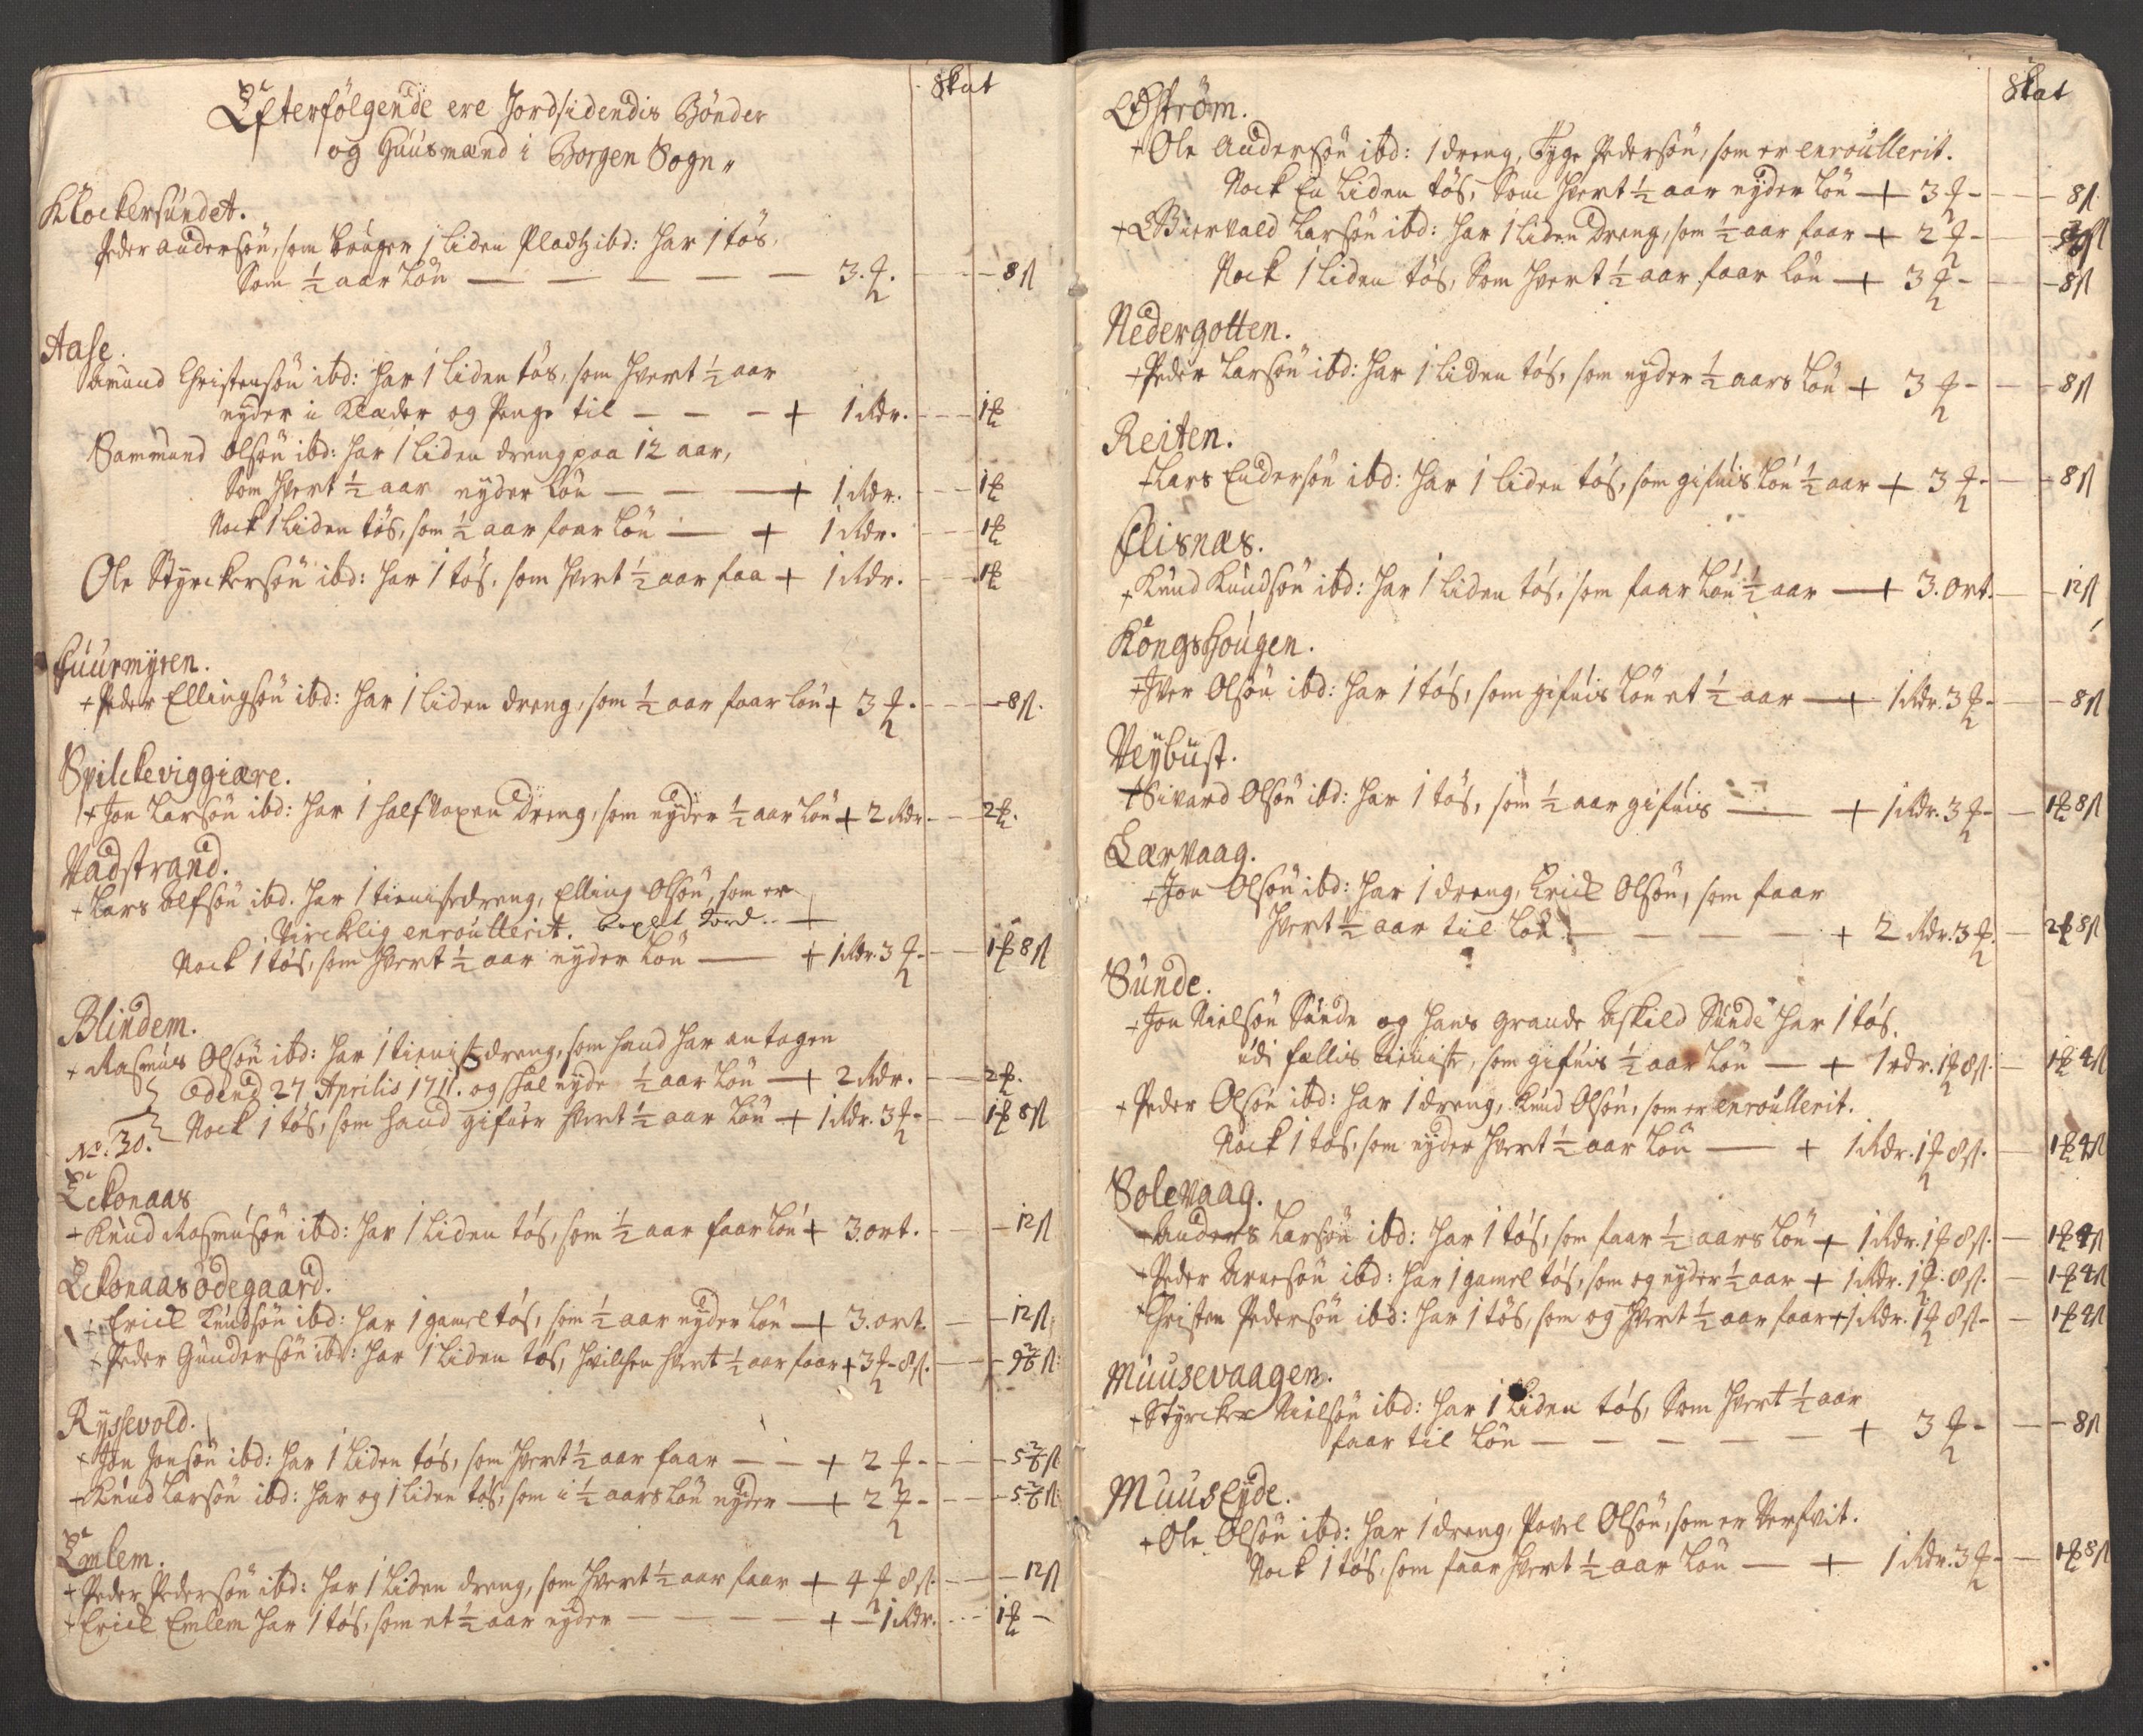 Skat
Efterfølgende ere Jordsidendis Bønder
og Huusmænd i Borgen Sogn„
Klockersundet.
Peder andersøn, som bruger 1 liden Pladtz ibd: har 1 tøs,
Som ½ aar Løn — — — — — 3. ℔. - - - 8 ß
Aase.
Amund Christensøn ibd: har 1 liden tøs, som hvert ½ aar
nyder i Klæder og Penge til — — — + 1 Rdr. - - - 1 ℔
Sammund olsøn ibd: har 1 liden dreng paa 12 aar,
Som hvert ½ aar nyder Løn — — — + 1 Rdr. - - - 1 ℔
Nock 1 liden tøs, som ½ aar faar Løn — + 1 Rdr. - - - 1 ℔
Ole Styrckersøn ibd: har 1 tøs, som hvert ½ aar faa + 1 Rdr. - - - 1 ℔
Fuurmyren.
+ Peder Ellingsøn ibd: har 1 liden dreng, som ½ aar faar løn + 3 ℔. - - - 8 ß.
Spilckeviggiære.
+ Jon Larsøn ibd: har 1 half voxen dreng, som nyder ½ aar Løn + 2 Rdr - - 2 ℔.
Vadstrand.
+ Lars olfsøn ibd. har 1 tienistedreng, Elling Olsøn, som er
Vircklig enroullerit. +
Nock 1 tøs, som hvert ½ aar nyder Løn — + 1 Rdr. 3 ℔. - - 1 ℔ 8 ß
Blindem.
+ Rasmus Olsøn ibd: har 1 tieniste dreng, som hand har antagen
den 27 Aprilis 1711. og skal nyde ½ aar Løn — + 2 Rdr. — 2 ℔.
No. 30. Nock 1 tøs, som hand gifuer hvert ½ aar Løn + 1 Rdr. 3 ℔ - - 1 ℔ 8 ß
Eckonaas
+ Knud Rasmusøn ibd: har 1 liden tøs, som ½ aar faar Løn + 3. ort. - - 12 ß
Eckonaasødegaard.
+ Erick Knudsøn ibd: har 1 gamel tøs, som ½ aar nyder Løn — + 3. ort. — 12 ß
+ Peder Gundersøn ibd: har 1 liden tøs, hvilchen hvert ½ aar faar + 3 ℔ - 8 ß. — 9⅖ ß:
Ryssevold.
+ Jon Jonsøn ibd: har 1 liden tøs, som hvert ½ aar faar — — + 2 ℔ - - - 5⅖ ß
+ Knud Larsøn ibd: har og 1 liden tøs, som i ½ aars Løn nyder — + 2 ℔ - - - 5⅖ ß
Emlem.
+ Peder Pedersøn ibd: har 1 liden dreng, som hvert ½ aar faar + 4 ℔ 8 ß. - - 12 ß
+ Erick Emlem har 1 tøs, som et ½ aar nyder — — — — + — 1 Rdr. - - - 1 ℔ -
Skat
Østrøm.
+ Ole Andersøn ibd: 1 dreng, Tyge Pedersøn, som er enroullerit.
Nock En liden tøs, Som hvert ½ aar nyder løn — + 3 ℔ - - - 8 ß.
+ Biervald Larsøn ibd: har 1 liden dreng, som ½ aar faar + 2 ℔ -
Nock 1 liden tøs, Som hvert ½ aar faar Løn — + 3 ℔ - - - 8 ß
Nedergotten.
+ Peder Larsøn ibd: har 1 liden tøs, som nyder ½ aars Løn + 3 ℔ - - - 8 ß
Reiten.
+ Lars Endersøn ibd: har 1 liden tøs, som gifuis Løn ½ aar + 3 ℔ - - - 8 ß
Flisnæs.
+ Knud Knudsøn ibd: har 1 liden tøs, som faar Løn ½ aar — + 3. ort. - - 12 ß
Kongshougen.
+ Iver Olsøn ibd: har 1 tøs, som gifuis Løn et ½ aar — + 1 Rdr. 3 ℔ - - - 8 ß
Veybust.
+ Sivard Olsøn ibd: har 1 tøs, som ½ aar gifuis — + 1 Rdr. 3 ℔ - — 1 ℔ 8 ß
Lærvaag.
+ Jon Olsøn ibd: har 1 dreng, Erick Olsøn, som faar
hvert ½ aar til Løn. — — — — + 2 Rdr. 3 ℔. — 2 ℔ 8 ß
Sunde.
+ Jon Nielsøn Sunde og hans Grande Askild Sunde har 1 tøs.
udi fællis tieniste, som gifuis ½ aar Løn — + 1 rdr. 1 ℔ 8 ß. — 1 ℔ 4 ß
+ Peder Olsøn ibd: har 1 dreng, Knud Olsøn, som er enroullerit.
Nock 1 tøs, som nyder hvert ½ aar Løn — + 1 Rdr. 1 ℔ 8 ß. — 1 ℔ 4 ß
Solevaag.
+ Anders Larsøn ibd: har 1 tøs, som faar ½ aars Løn + 1 Rdr. 1 ℔ 8 ß. — 1 ℔ 4 ß
+ Peder Arnesøn ibd: har 1 gamel tøs, som og nyder ½ aar + 1 Rdr. 1 ℔: 8 ß. — 1 ℔ 4 ß
+ Christen Pedersøn ibd: har 1 tøs, som og hvert ½ aar faar + 1 Rdr. 1 ℔ 8 ß - — 1 ℔ 4 ß
Muusevaagen.
+ Styrcker Nielsøn ibd: har 1 liden tøs, Som hvert ½ aar
faar til Løn — — — — — + 3 ℔ - — - 8 ß
Muuseyde.
+ Ole Olsøn ibd: har 1 dreng, Povel Olsøn, som er
Nock 1 tøs, som faar hvert ½ aar Løn — + 1 Rdr. 3 ℔ - — 1 ℔ 8 ß